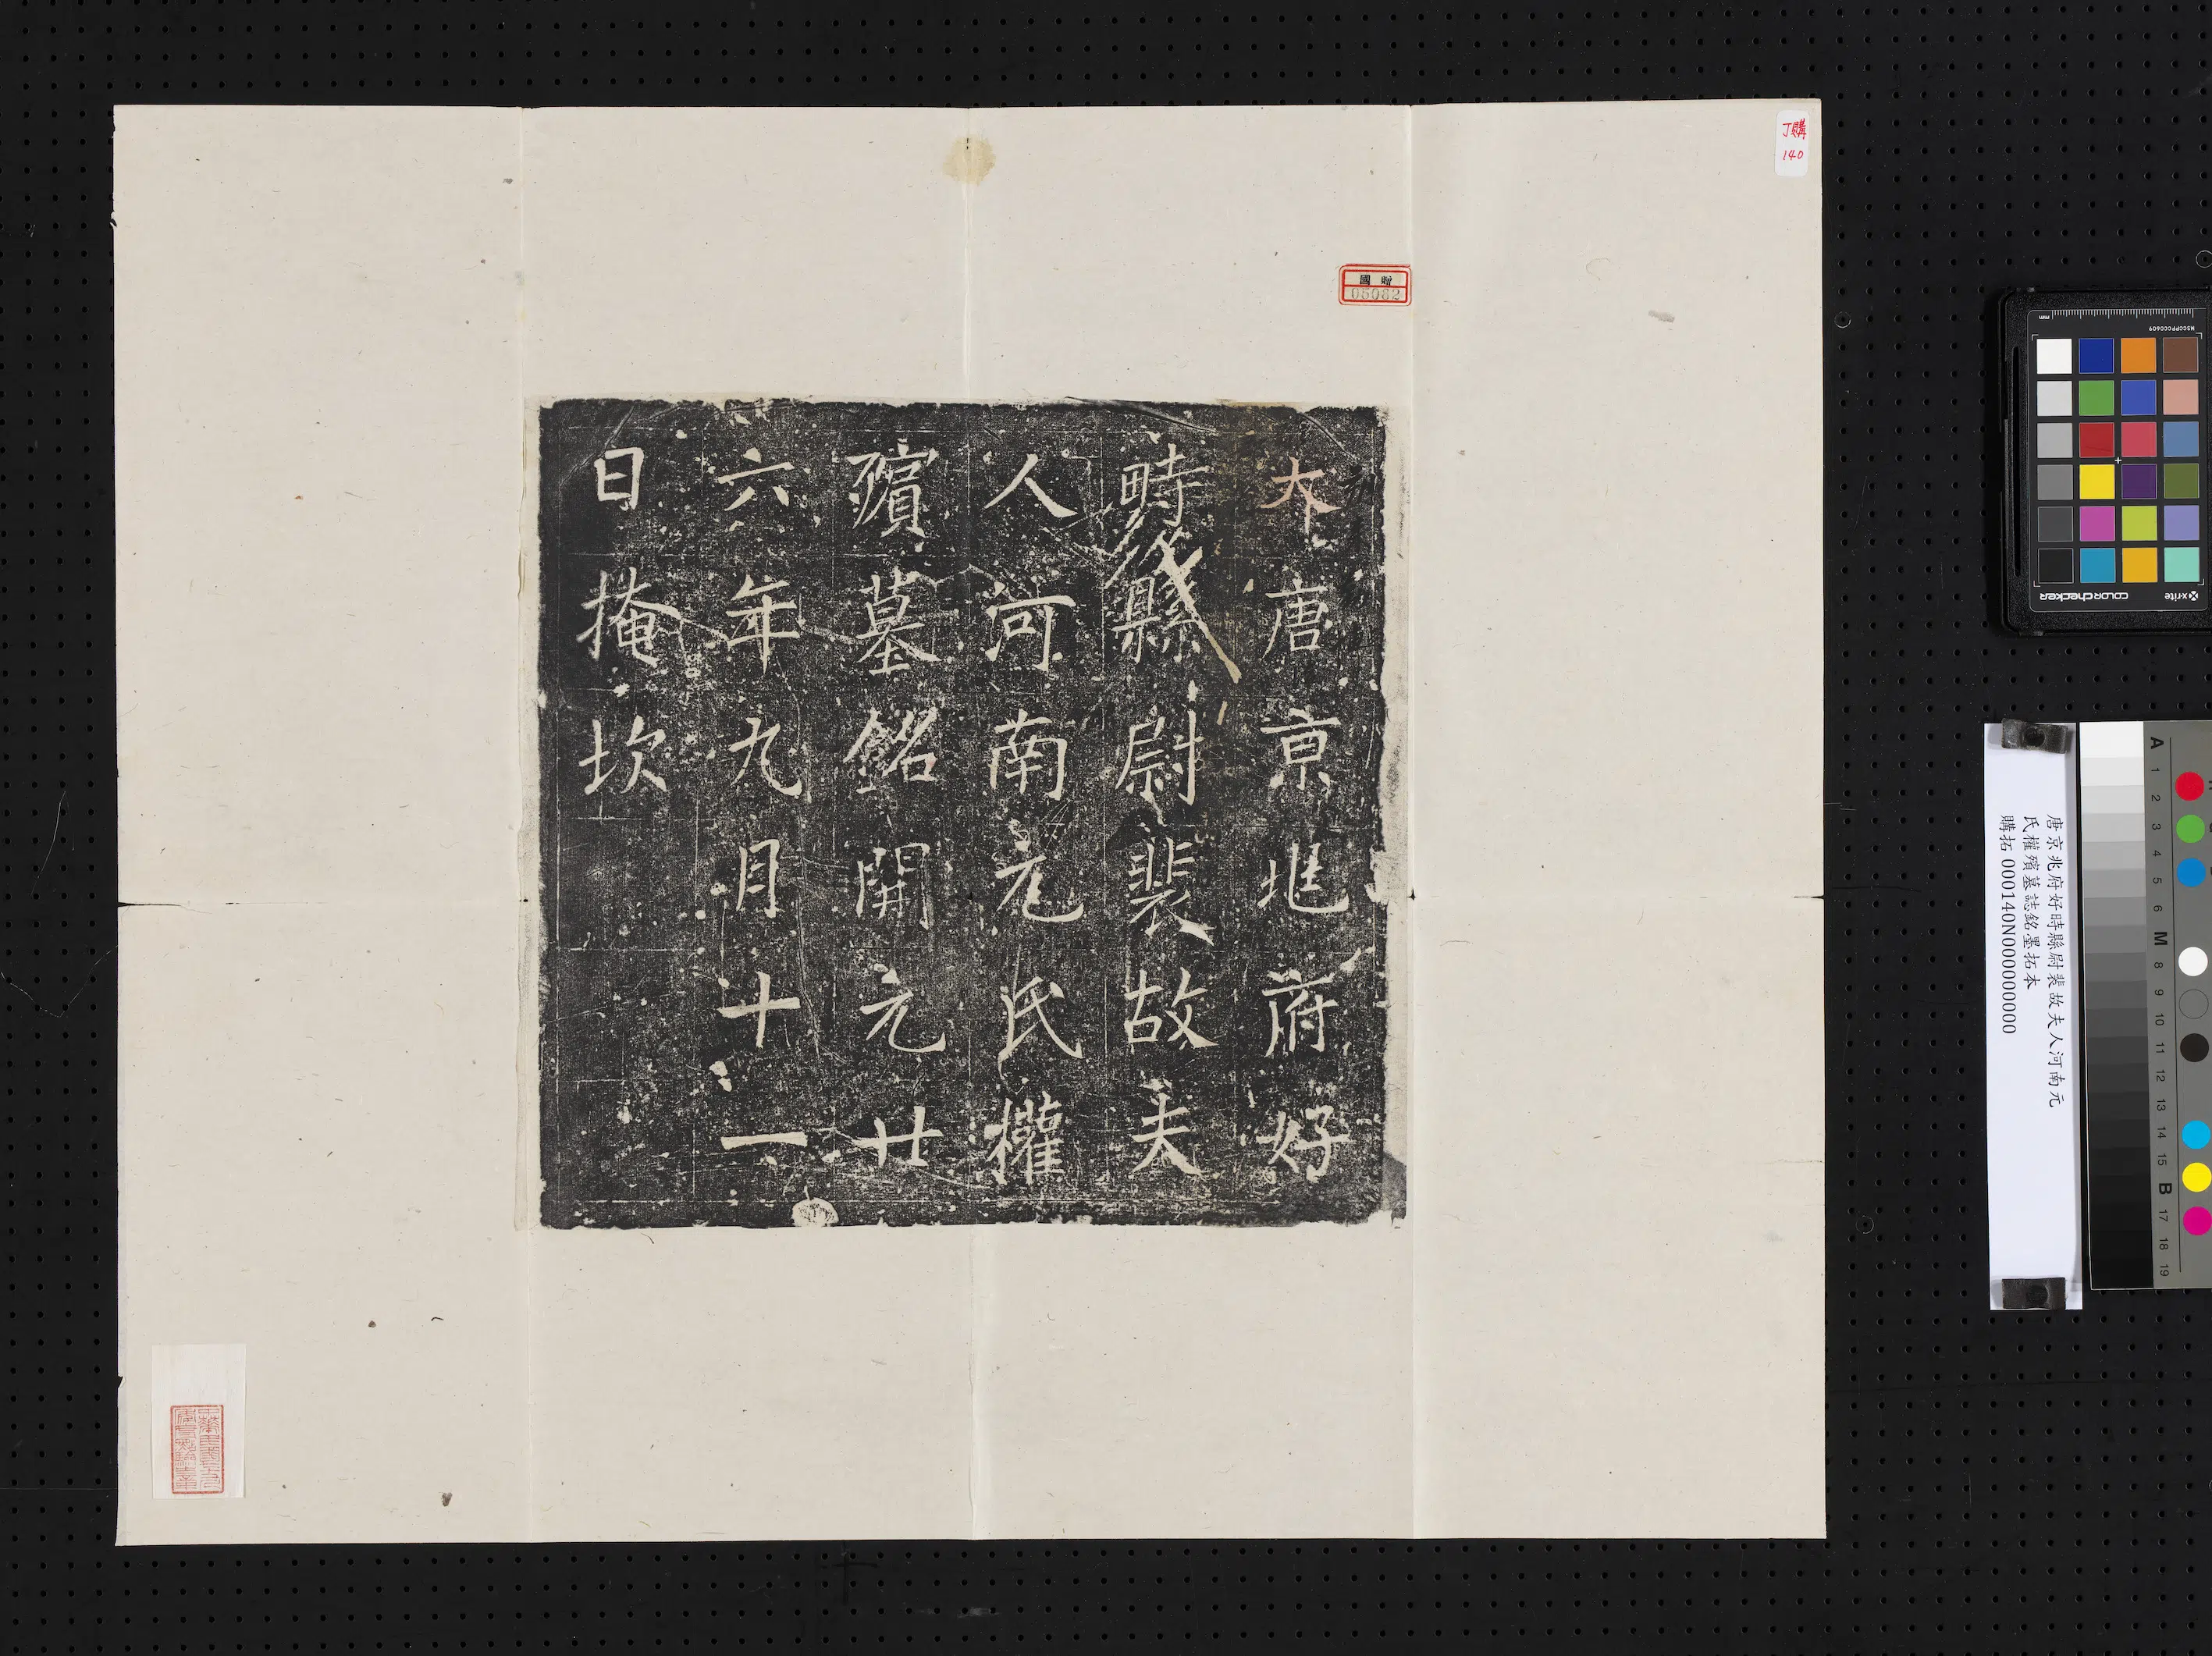 丁購
140
國贈
05082
大唐京兆府好
畤縣尉裴故夫
人河南元氏權
殯墓銘開元廿
六年九月十一
日掩坎
唐京兆府好時縣尉裴故夫人河南元
氏權殯墓誌銘墨拓本
購拓 000140N000000000
mm
MSCCPCC0609
colorchecker x-rite
A 1 2 3 4 5 6 M 8 9 10 11 12 13 14 15 B 17 18 19